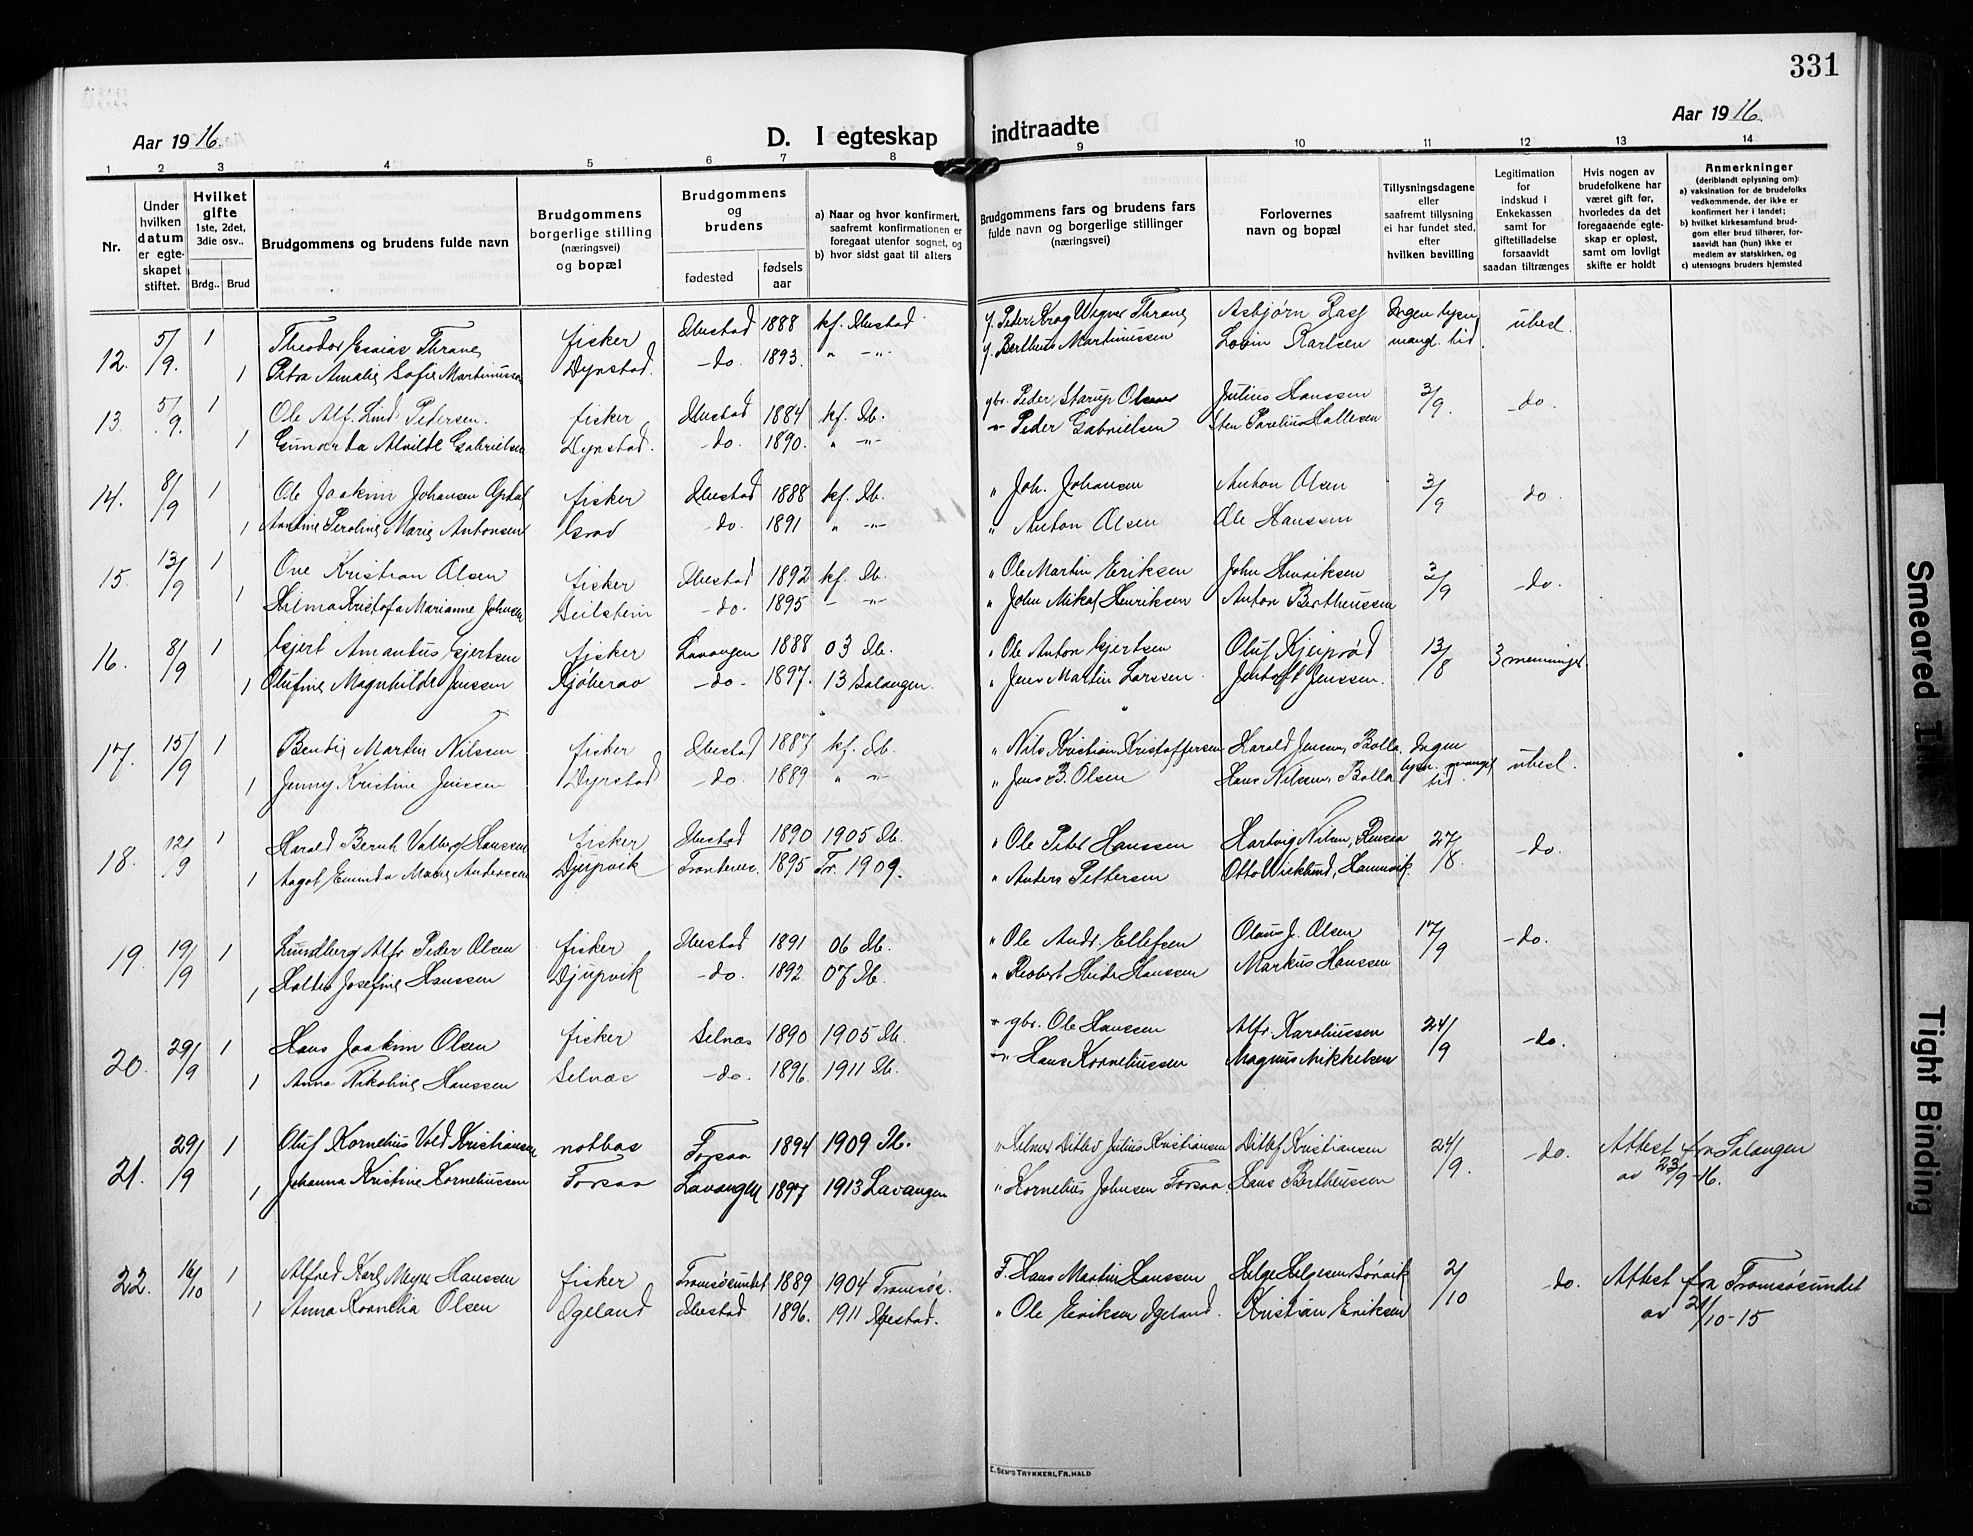 331
Aar 1916. D. I egteskap indtraadte Aar 1916.
1 2 3 4 5 6 7 8 9 10 11 12 13 14
Nr.
Under hvilken datum er egteskapet stiftet.
Hvilket gifte 1ste, 2det, 3die osv..
Brdg.. Brud
Brudgommens og brudens fulde navn
Brudgommens borgerlige stilling (næringsvei) og bopæl
Brudgommens og brudens
fødested
fødselsaar
a) Naar og hvor konfirmert, saafremt konfirmationen er foregaat utenfor sognet, og
b) hvor sidst gaat til alters
Brudgommens fars og brudens fars fulde navn og borgerlige stillinger (næringsvei)
Forlovernes navn og bopæl
Tillysningsdagene eller saafremt tillysning ei har fundet sted, efter hvilken bevilling
Legitimation for indskud i Enkekassen samt for giftetilladelse forsaavidt saadan tiltrænges
Hvis nogen av brudefolkene har været gift før, hvorledes da det foregaaende egteskap er opløst, samt om lovligt skifte er holdt
Anmerkninger
(deriblandt oplysning om):
a) vaksination for de brudefolks vedkommende, der ikke er konfirmert her i landet;
b) hvilket kirkesamfund brudgom eller brud tilhører, forsaavidt han (hun) ikke er medlem av statskirken, og
c) utensogns bruders hjemsted
12. 5/9. 1 Theodor Esaias Thrane fisker Ibestad 1888 kf. Ibestad f. Peder Krog Wigner Thrane Asbjørn Rasch Ingen lysn. ubesl.
1 Petra Amalie Sofie Martinussen Dyrstad. -do- 1893. " -"- f. Bertheus Martinussen Lovin Karlsen mangl. tid.
13. 5/9. 1 Ole Alf. Lind Pedersen. fisker Ibestad 1884 kf. Ib. gbr. Peder Starup Olsen Julius Hanssen 3/9. -do.
1 Gunarda Alvilde Gabrielsen Dyrstad. -do. 1890. " -"- -"- Peder Gabrielsen
14. 8/9 1 Ole Joakim Johansen fisker Ibestad 1888 kf. Ib. " Joh. Johansen Anton Olsen 3/9 do.
1 Antine Peroline Marie Antonsen Grov -do. 1891 " -"- " Anton Olsen Ole Hanssen
15. 13/9 1 Ove Kristian Olsen fisker Ibestad 1892 kf. Ib. " Ole Martin Eriksen John Henriksen 3/9 -do.
1 Hilma Kristofa Marianne Johnsen Seilstein -do- 1895 - -"- " John Mikal Henriksen Anton Bertheussen
16. 8/9 1 Gjert Amantus Gjertsen fisker Lavangen 1888 03 Ib. " Ole Anton Gjertsen Oluf Kjeiprød 13/8 3 menninger
1 Olufine Magnhilde Jenssen -do- 1897. 13 Salangen. " Jens Martin Larssen. Jentoft Jenssen.
17. 15/9 1 Bendix Martin Nilssen fisker Ibestad 1887 kf. Ib. " Nils Kristian Kristoffersen Harald Jensen, Bolla. Ingen ubesl.
1 Jenny Kristine Jenssen Dyrstad -do. 1889 " -"- " Jens B. Olsen Hans Nilsen, Bolla lysn. mangel tid.
18. 12/9 1 Harald Bernh. Valberg Hanssen fisker Ibestad 1890 1905 Ib. " Ole Peter Hanssen Hartvig Nilsen, Rensaa 27/8. -do.
1 Aagot Eminda Marie Anderssen Djupvik Trondenes. 1895 Tr. 1909. " Anders Pettersen Otto Wicklund, Hamnvik.
19. 19/9 1 Lundberg Alfr. Peder Olsen fisker Ibestad 1891 06 Ib. " Ole Andr. Ellefsen Olaus J. Olsen 17/9 -do.
1 Josefine Hanssen Djupvik -do. 1892 07 Ib. " Robert Heide Hanssen Markus Hanssen
20. 29/9 1 Hans Joakim Olsen fisker Selnæs 1890 1905 Ib. " gbr. Ole Hanssen Alfr. Karoliussen 24/9 -do.
1 Anna Nikoline Hanssen Selnæs -do. 1896. 1911 Ib. -"- Hans Korneliussen Magnus Mikkelsen
21. 29/9 1 Oluf Kornelius Vold Kristiansen notbas Forsaa 1894 1909 Ib. " Helmer Ditlev Julius Kristiansen Ditlef Kristiansen 24/9. -do. Attest fra Salangen
1 Johanna Kristine Korneliussen Forsaa Lavangen 1897 1913 Lavangen " Kornelius Johnsen Forsaa. Hans Bertheussen av 23/9-16.
22. 16/10 1 Alfred Karl Meyer Hanssen fisker Tromsøsundet 1889 1904 Tromsøs. F. Hans Martin Hanssen Helge Helgesen Sørvik 2/10 do. Attest fra Tromsøsundet
1 Anna Kornelia Olsen Igeland Ibestad 1896. 1911 Ibestad. " Ole Eriksen Igeland. Kristian Eriksen av 2/10-15
E. SEM'S TRYKKERI, FR.HALD
Smeared Ink
Tight Binding